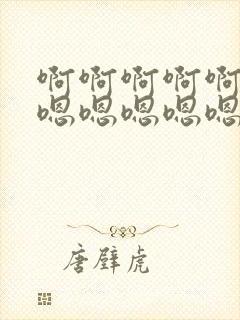 啊啊啊啊啊
嗯嗯嗯嗯嗯
唐璧虎